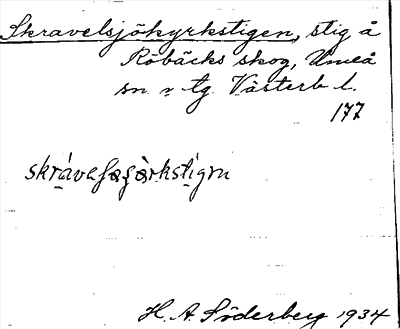 Skravelsjökyrkstigen, stig å
Röbäcks skog, Umeå
sn o tg. Västerb l.
177
H. A. Söderberg 1934